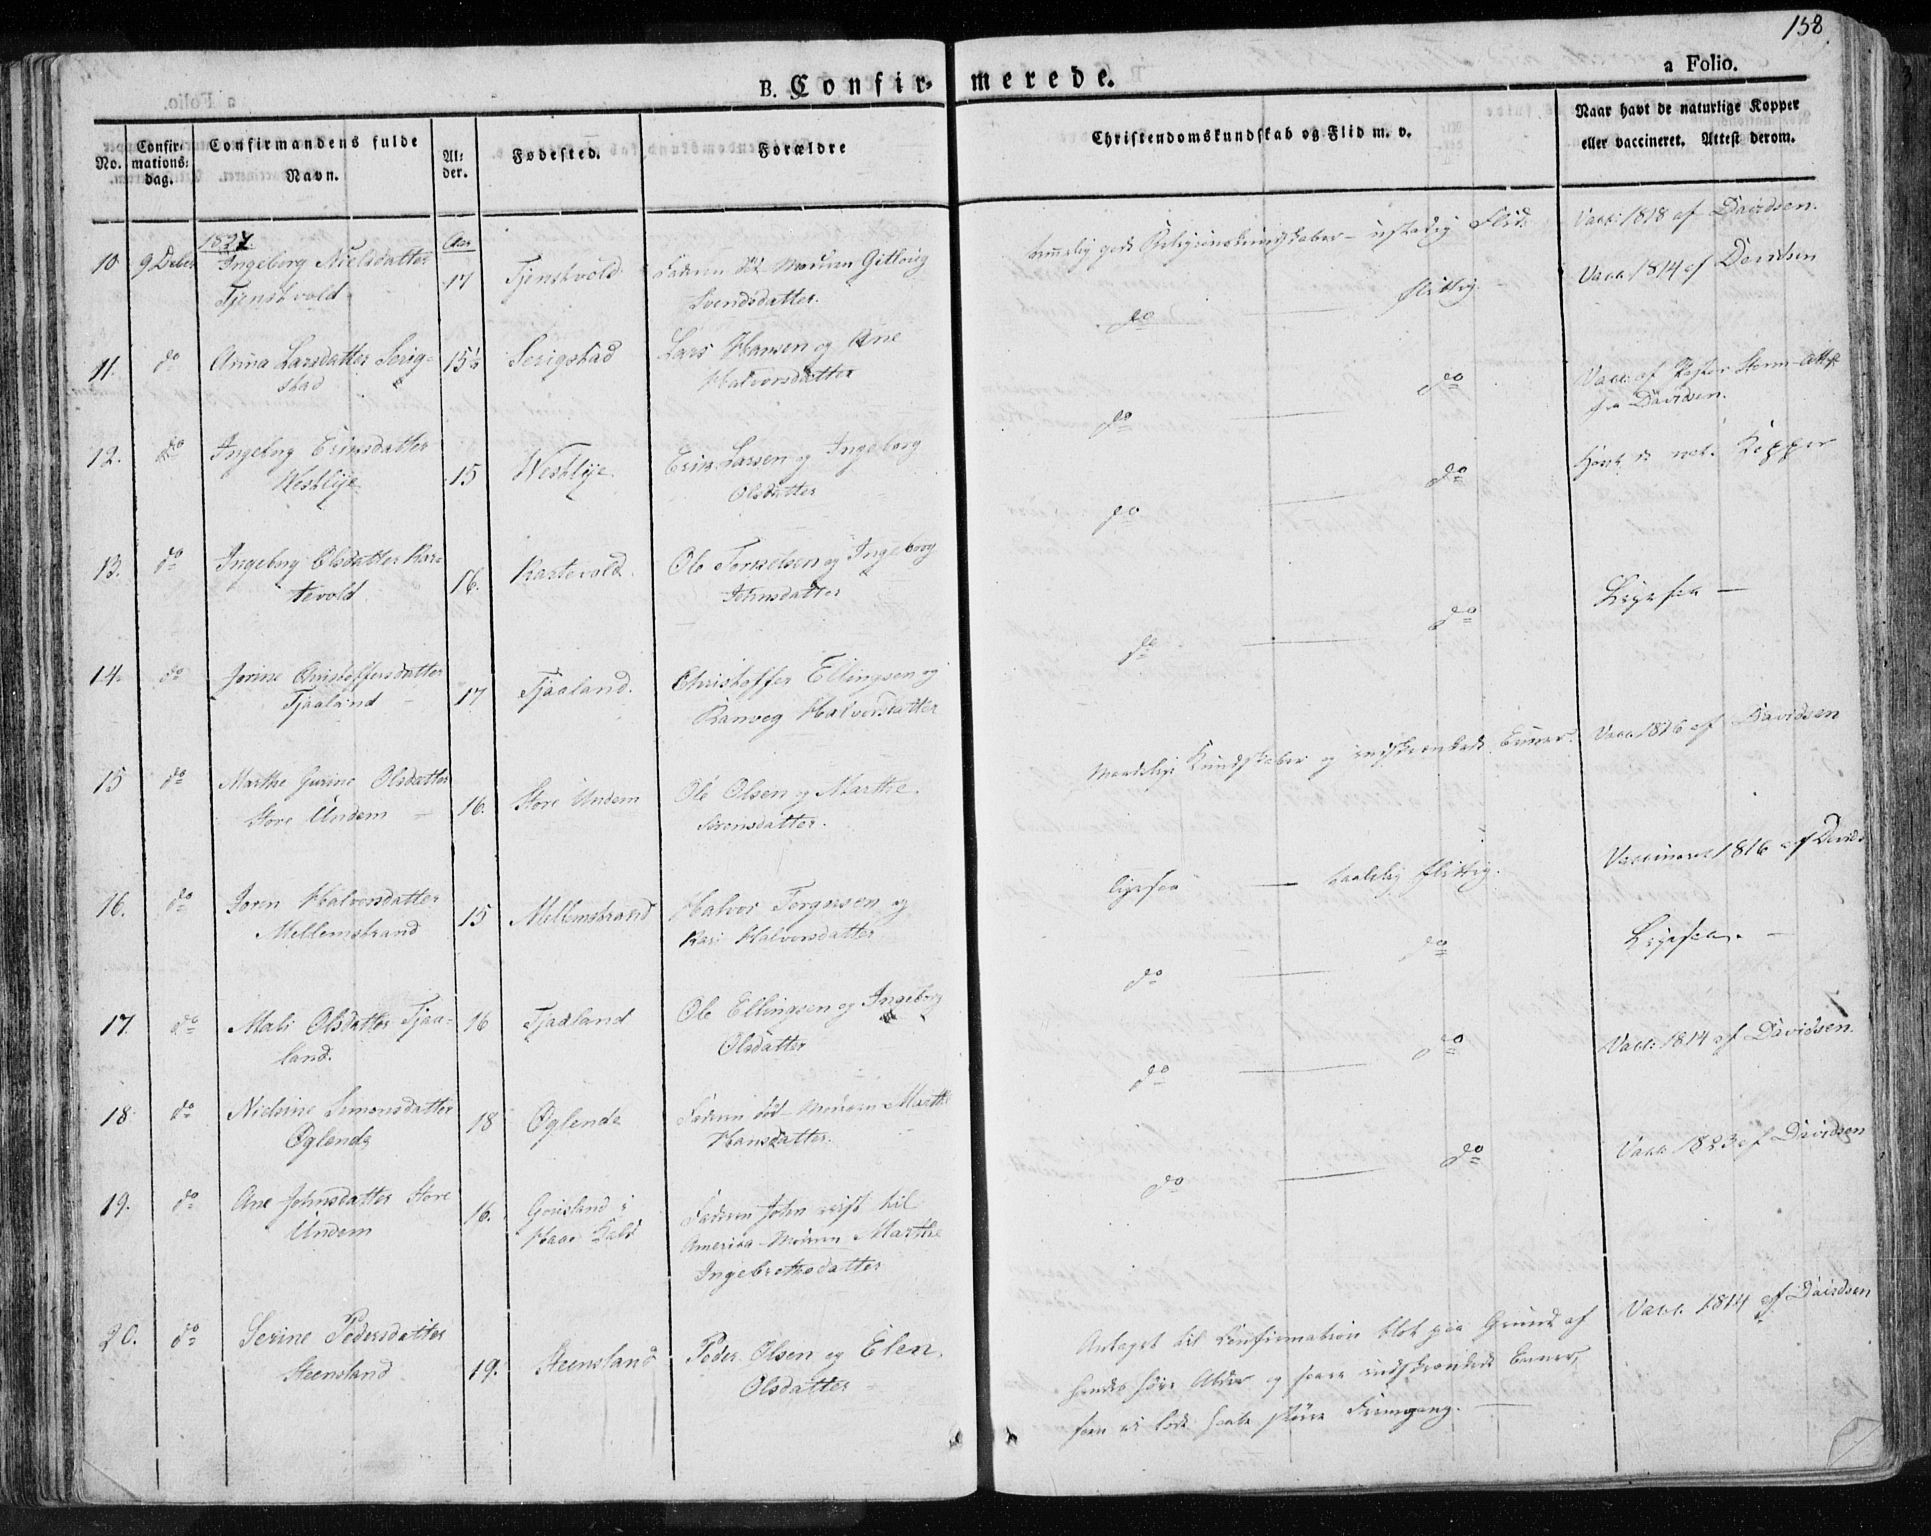 158
B. Confirmerede.
a Folio.
No.
Confirmations: dag.
Confirmandens fulde Navn.
Al: der.
Fødested.
Forældre
Christendomskundskab og Flid m. v.
Naar havt de naturlige Kopper eller vaccineret. Attest derom.
1827. Aar
10 9 Dcbr Ingeborg Nielsdatter 17 Tjenstvold Faderen død Moderen Gitlaug
Tjenstvold Svendsdatter.
temmelig gode Religionskundskaber - ustadig Flid. Vacc: 1818 af Davidsen.
11. do Anna Larsdatter Serig- 15½ Serigstad Lars Hansen og Ane
stad Halvorsdatter
do — flittig. Vacc. 1814 af Davidsen
12. do Ingeborg Eriksdatter 15 Westlye. Erik Larsen og Ingeborg
Westlye Olsdatter
do — do Vacc: af Storm Att.
fra Davidsen.
13. do Ingeborg Olsdatter Kar- 16. Kartevold. Ole Torkelsen og Ingeborg
tevold Johnsdatter
do — do Havt de nat. Kopper
14. do Jorine Christoffersdatter 17 Tjaaland. Christoffer Ellingsen og
Tjaaland Ranveg Halvorsdatter
do — do Ligesaa —
15 do Marthe Gurine Olsdatter 16. Store Undem Ole Olsen og Marthe
Store Undem Sørensdatter.
Maadelige Kundskaber og indskrænkede Evner. Vacc. 1816 af Davidsen
16. do Joren Halvorsdatter 15 Mellemstrand Halvor Torgersen og
Mellemstrand Kari Halvorsdatter
ligesaa — taalelig flittig. Vaccineret 1816 af Davids
17. do Mali Olsdatter Tjaa- 16 Tjaaland Ole Ellingsen og Ingeborg
land. Olsdatter
do — do Ligesaa. —
18 do Nielsine Simonsdatter 18 Øglende Faderen død Moderen Marthe
Øglende Hansdatter.
do — do Vacc: 1814 af Davidsen.
19. do Ane Johnsdatter Store 16. i Faderen John reist til
Undem Haae Gield America Moderen Marthe
Ingebretsdatter
do — do Vacc. 1823 af Davidsen
20. do Serine Pedersdatter 19. Steensland Peder Olsen og Elen
Steensland Olsdatter
Antaget til Confirmation blot paa Grund af
hendes høie Alder og saare indskrænkede Evner,
som ei lode haabe større Fremgang. —
Vacc. 1814 af Davidsen